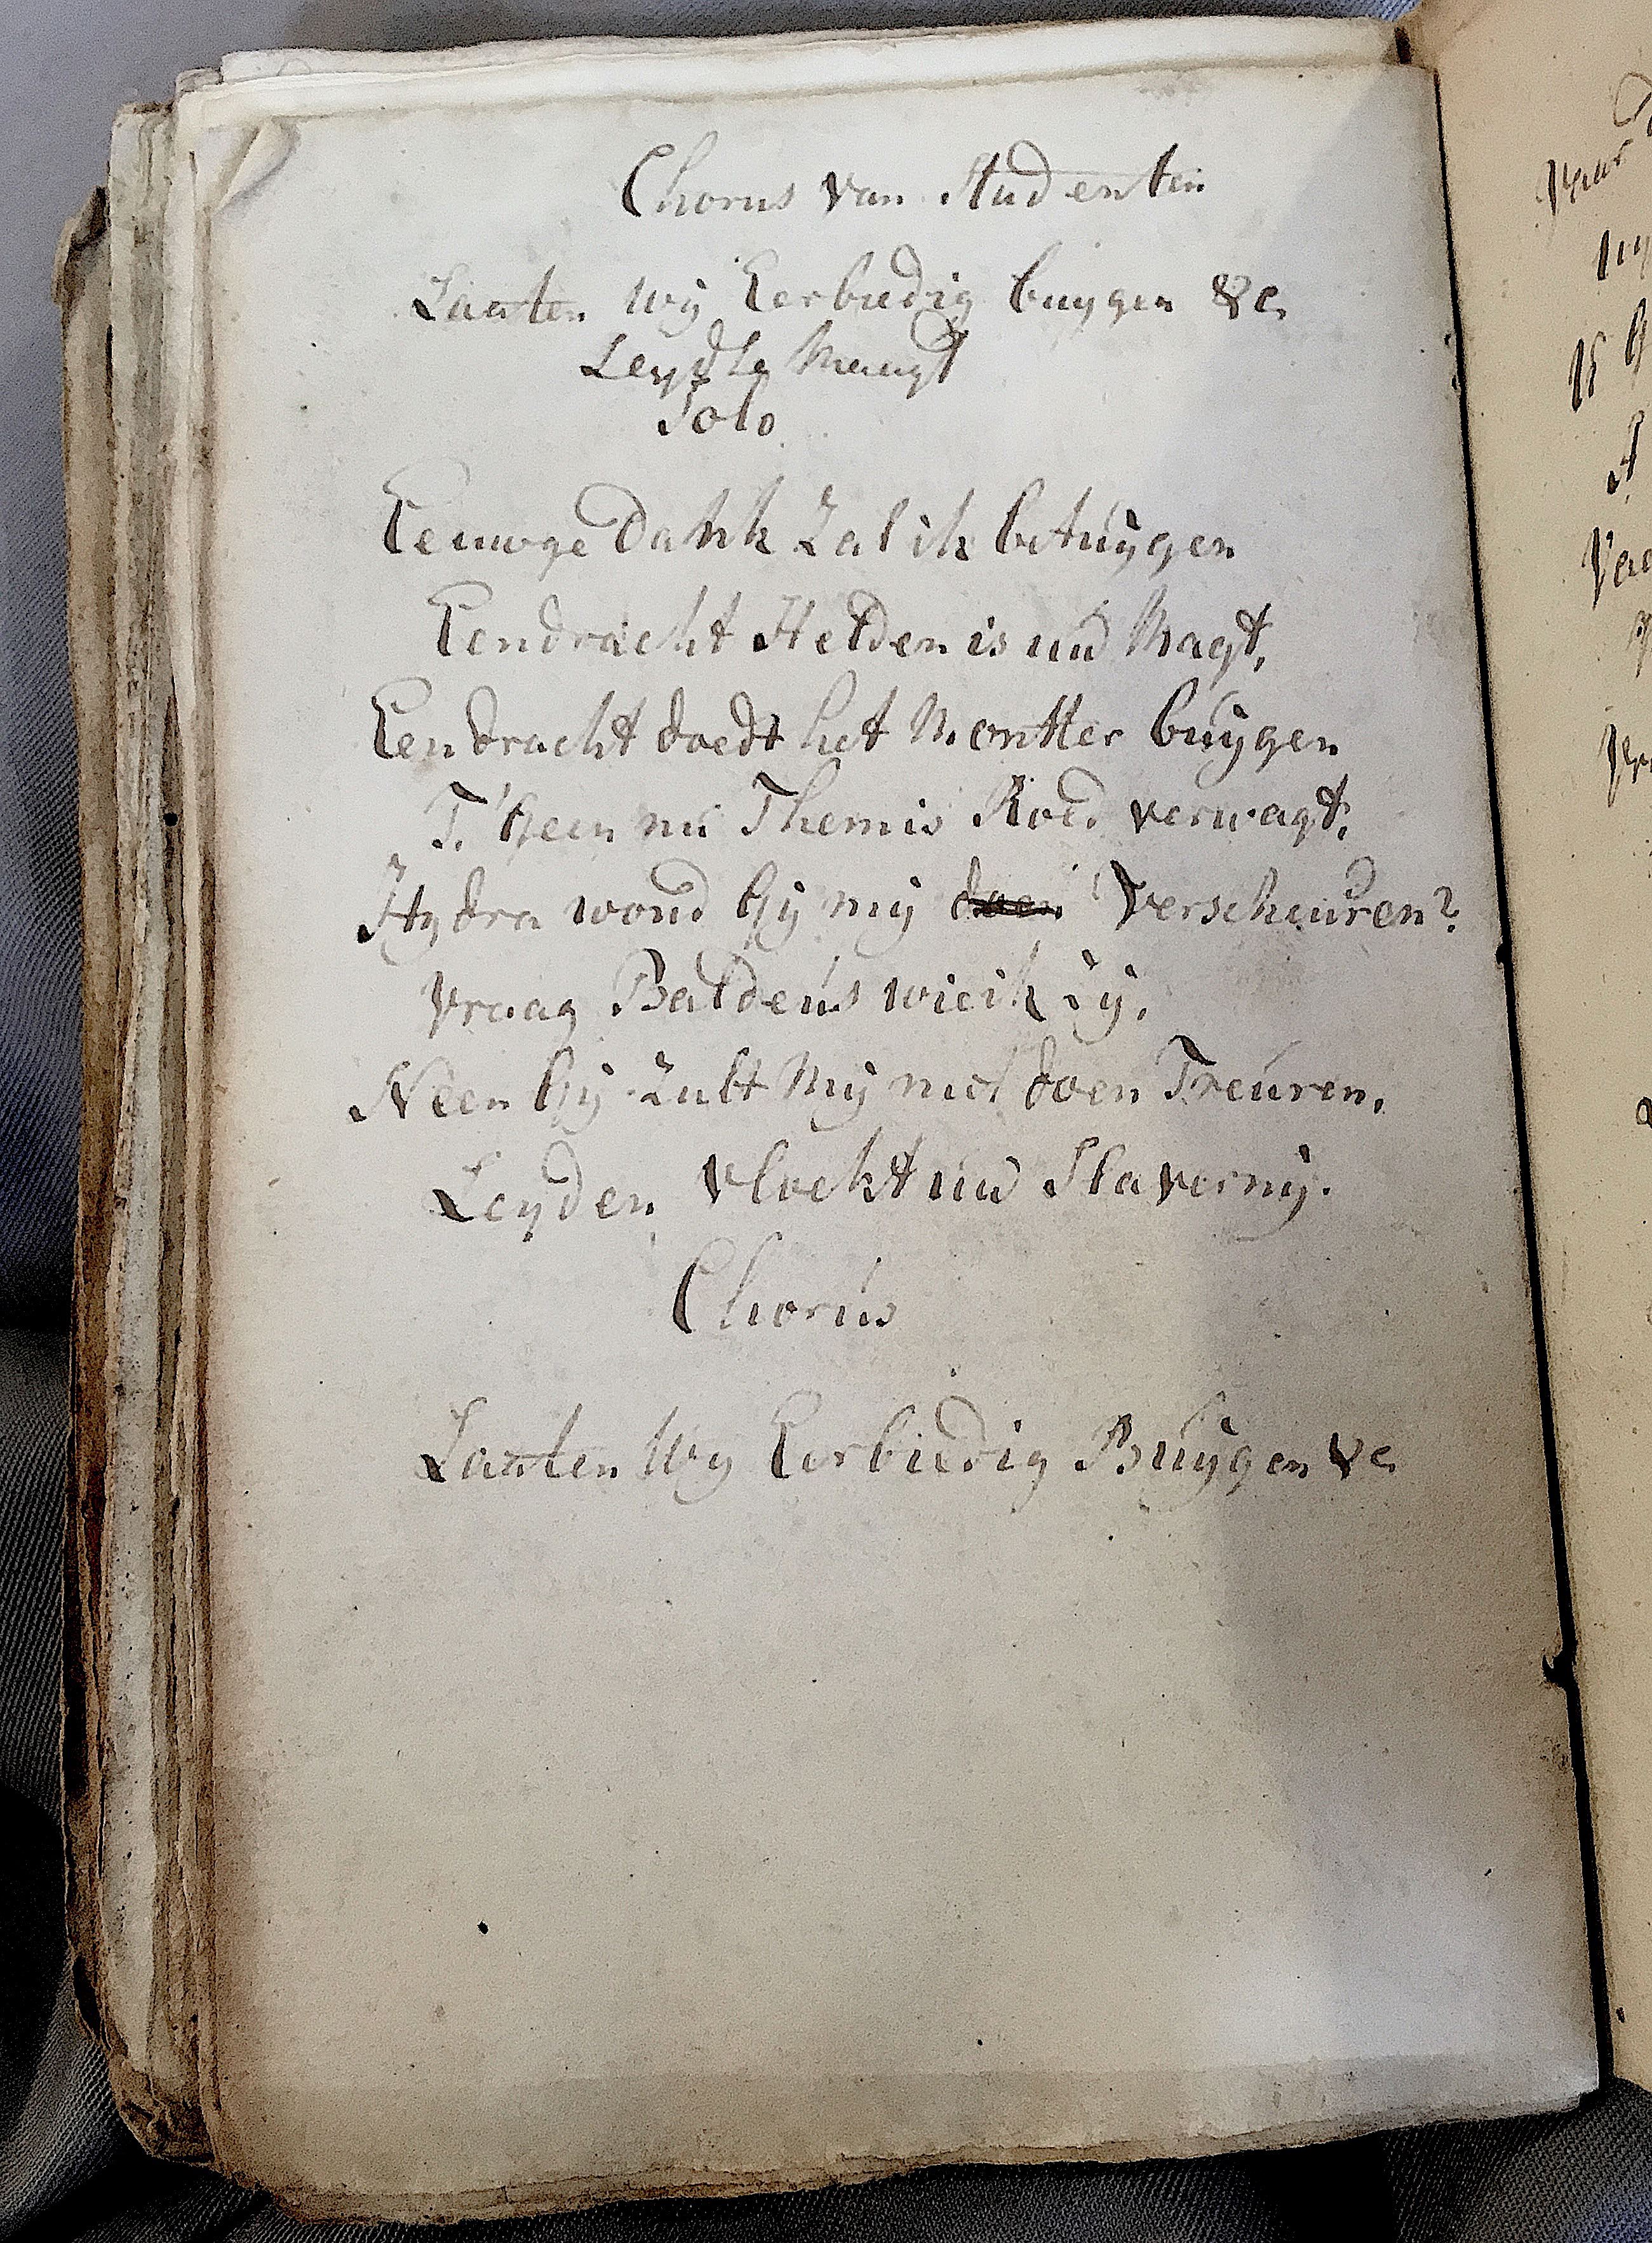 Chorus van Studenten
Laaten wij Eerbiedig buygen &c
Leydse Maagd
Solo
Eeuwge Dank Zal ik betuijgen
Eendracht Helden is uw Magt,
Eendracht doedt het Monster buijgen
T. Geen nu Themis Roed verwagt,
Hydra woud Gij mij doen Verscheuren?
Vraag Baldeus wie ik Zij,
Neen Gij Zult Mij niet doen Treuren,
Leyden vloekt uw Slavernij.
Chorus
Laaten Wij Eerbiedig Buijgen &c